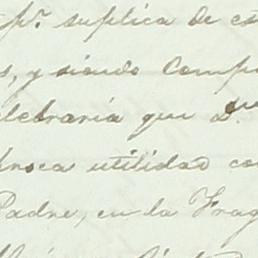 pr. suplica de es
s, y siendo Comp
elebraria que D.
proca utilidad co
Padre, en la Frag